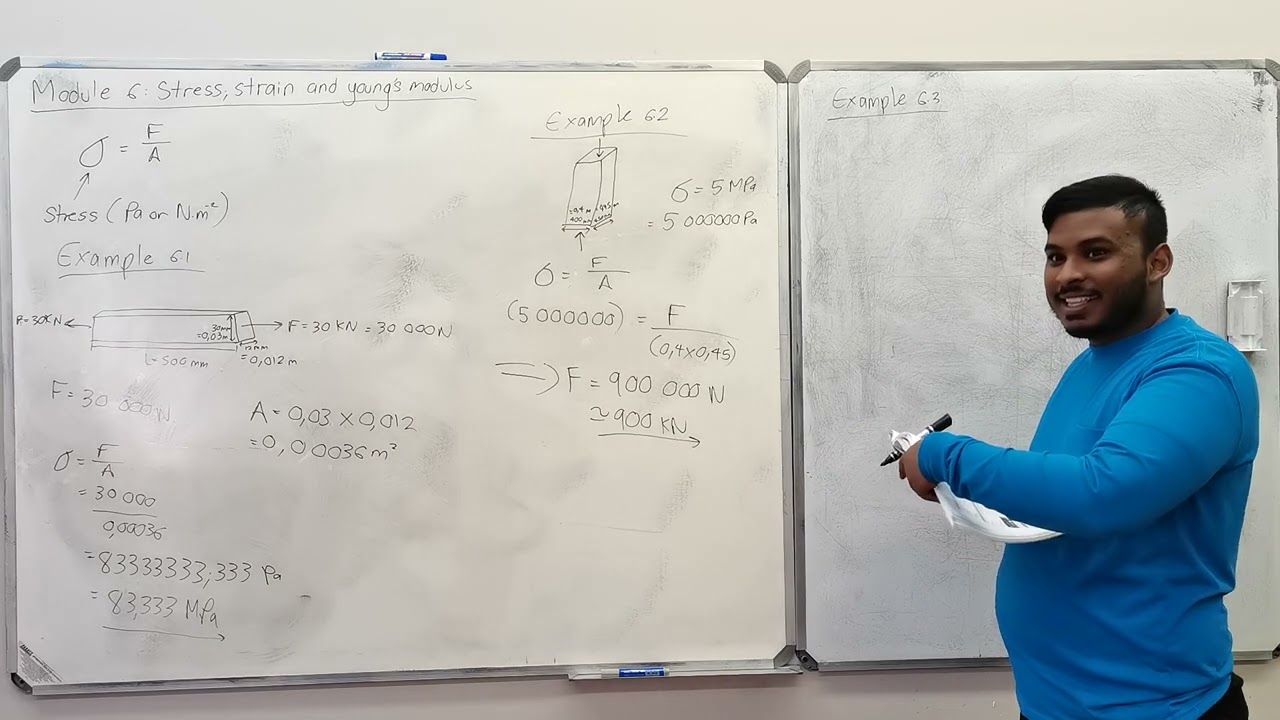 Module 6: Stress, strain and young's modulus
σ = F/A
Stress (Pa or N.m⁻²)
Example 6.1
F=30KN
F = 30 KN = 30 000N
30mm
=0,03m
12mm
=0,012 m
L=500mm
F=30 000N
A = 0,03 × 0,012
=0,00036m²
σ = F/A
= 30 000
0,00036
=83333333,333 Pa
= 83,333 MPa
Example 6.2
=0,4 m
400mm
σ = 5 MPa
= 5 000000Pa
σ = F/A
(5 000000) = F
(0,4×0,45)
=> F = 900 000 N
≃ 900 KN
Example 6.3